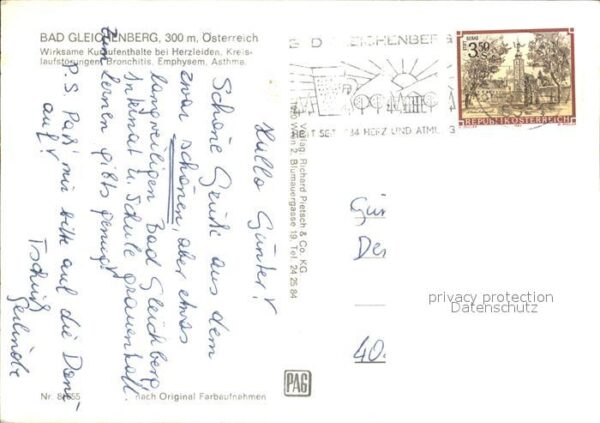 BAD GLEICHENBERG, 300 m, Österreich
Wirksame Kuraufenthalte bei Herzleiden, Kreis-
laufstörungen, Bronchitis, Emphysem, Asthma.
Hallo Günter!
Schöne Grüße aus dem
zwar schönen, aber etwas
langweiligen Bad Gleichberg.
Internat u. Schule grauenhaft.
Zum Lernen gibts genug!
P.S. Paß' mir bitte auf die
auf!
Tschüß
Gerlinde
Nr. 8/655
nach Original Farbaufnahmen
Verlag: Richard Pietsch & Co. KG
1020 Wien 2, Blumauergasse 19, Tel. 24 25 84
PAG
BAD GLEICHENBERG
HEILT SEIT 1834 HERZ UND ATMUNG
3.50
REPUBLIK ÖSTERREICH
Gün
De
40.
privacy protection
Datenschutz